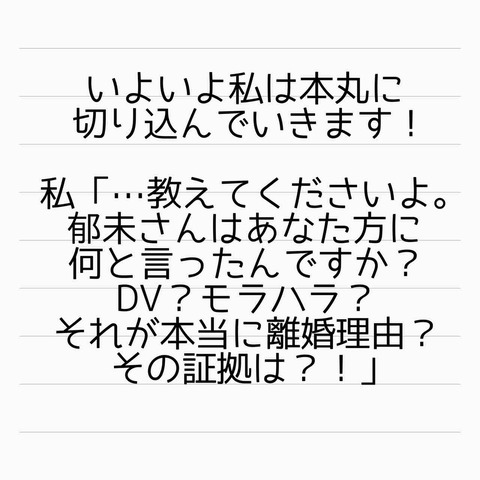 いよいよ私は本丸に
切り込んでいきます！
私「…教えてくださいよ。
郁未さんはあなた方に
何と言ったんですか？
DV？モラハラ？
それが本当に離婚理由？
その証拠は？！」